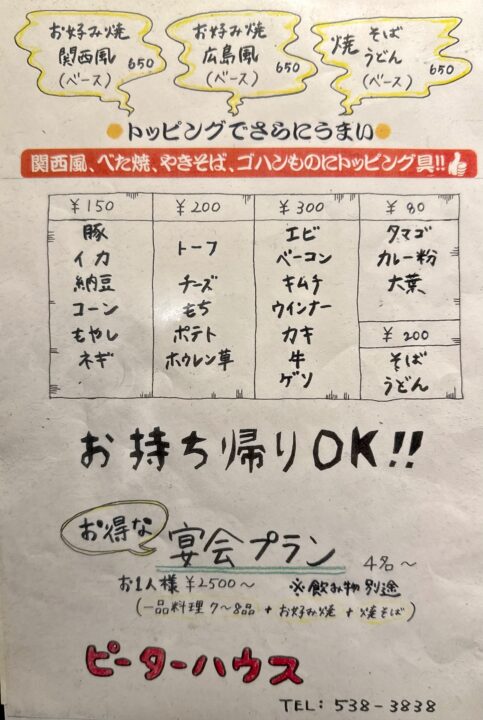 お好み焼
関西風
(ベース) 650
お好み焼
広島風
(ベース) 650
焼 そば
うどん
(ベース) 650
トッピングでさらにうまい
関西風、べた焼、やきそば、ゴハンものにトッピング具!!
¥150
豚
イカ
納豆
コーン
もやし
ネギ
¥200
トーフ
チーズ
もち
ポテト
ホウレン草
¥300
エビ
ベーコン
キムチ
ウインナー
カキ
牛
ゲソ
¥80
タマゴ
カレー粉
大葉
¥200
そば
うどん
お持ち帰りOK!!
お得な
宴会プラン 4名~
お1人様 ¥2500~ ※飲み物別途
(一品料理 7~8品 + お好み焼 + 焼そば)
ピーターハウス
TEL: 538-3838